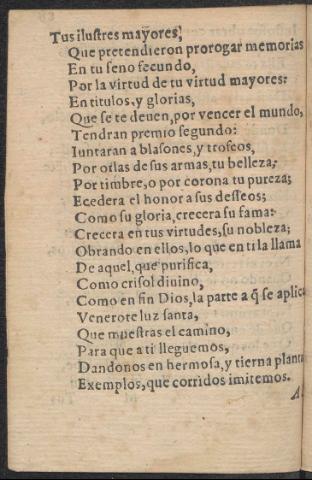 Tus ilustres mayores,
Que pretendieron prorogar memorias
En tu seno fecundo,
Por la virtud de tu virtud mayores:
En titulos, y glorias,
Que se te deuen, por vencer el mundo,
Tendran premio segundo:
Iuntaran a blasones, y trofeos,
Por orlas de sus armas, tu belleza,
Por timbre, o por corona tu pureza;
Ecedera el honor a sus desseos;
Como su gloria, crecera su fama:
Crecera en tus virtudes, su nobleza;
Obrando en ellos, lo que en ti la llama
De aquel, que purifica,
Como crisol diuino,
Como en fin Dios, la parte a q̃ se aplica
Venerote luz santa,
Que muestras el camino,
Para que a ti lleguemos,
Dandonos en hermosa, y tierna planta
Exemplos, que corridos imitemos.